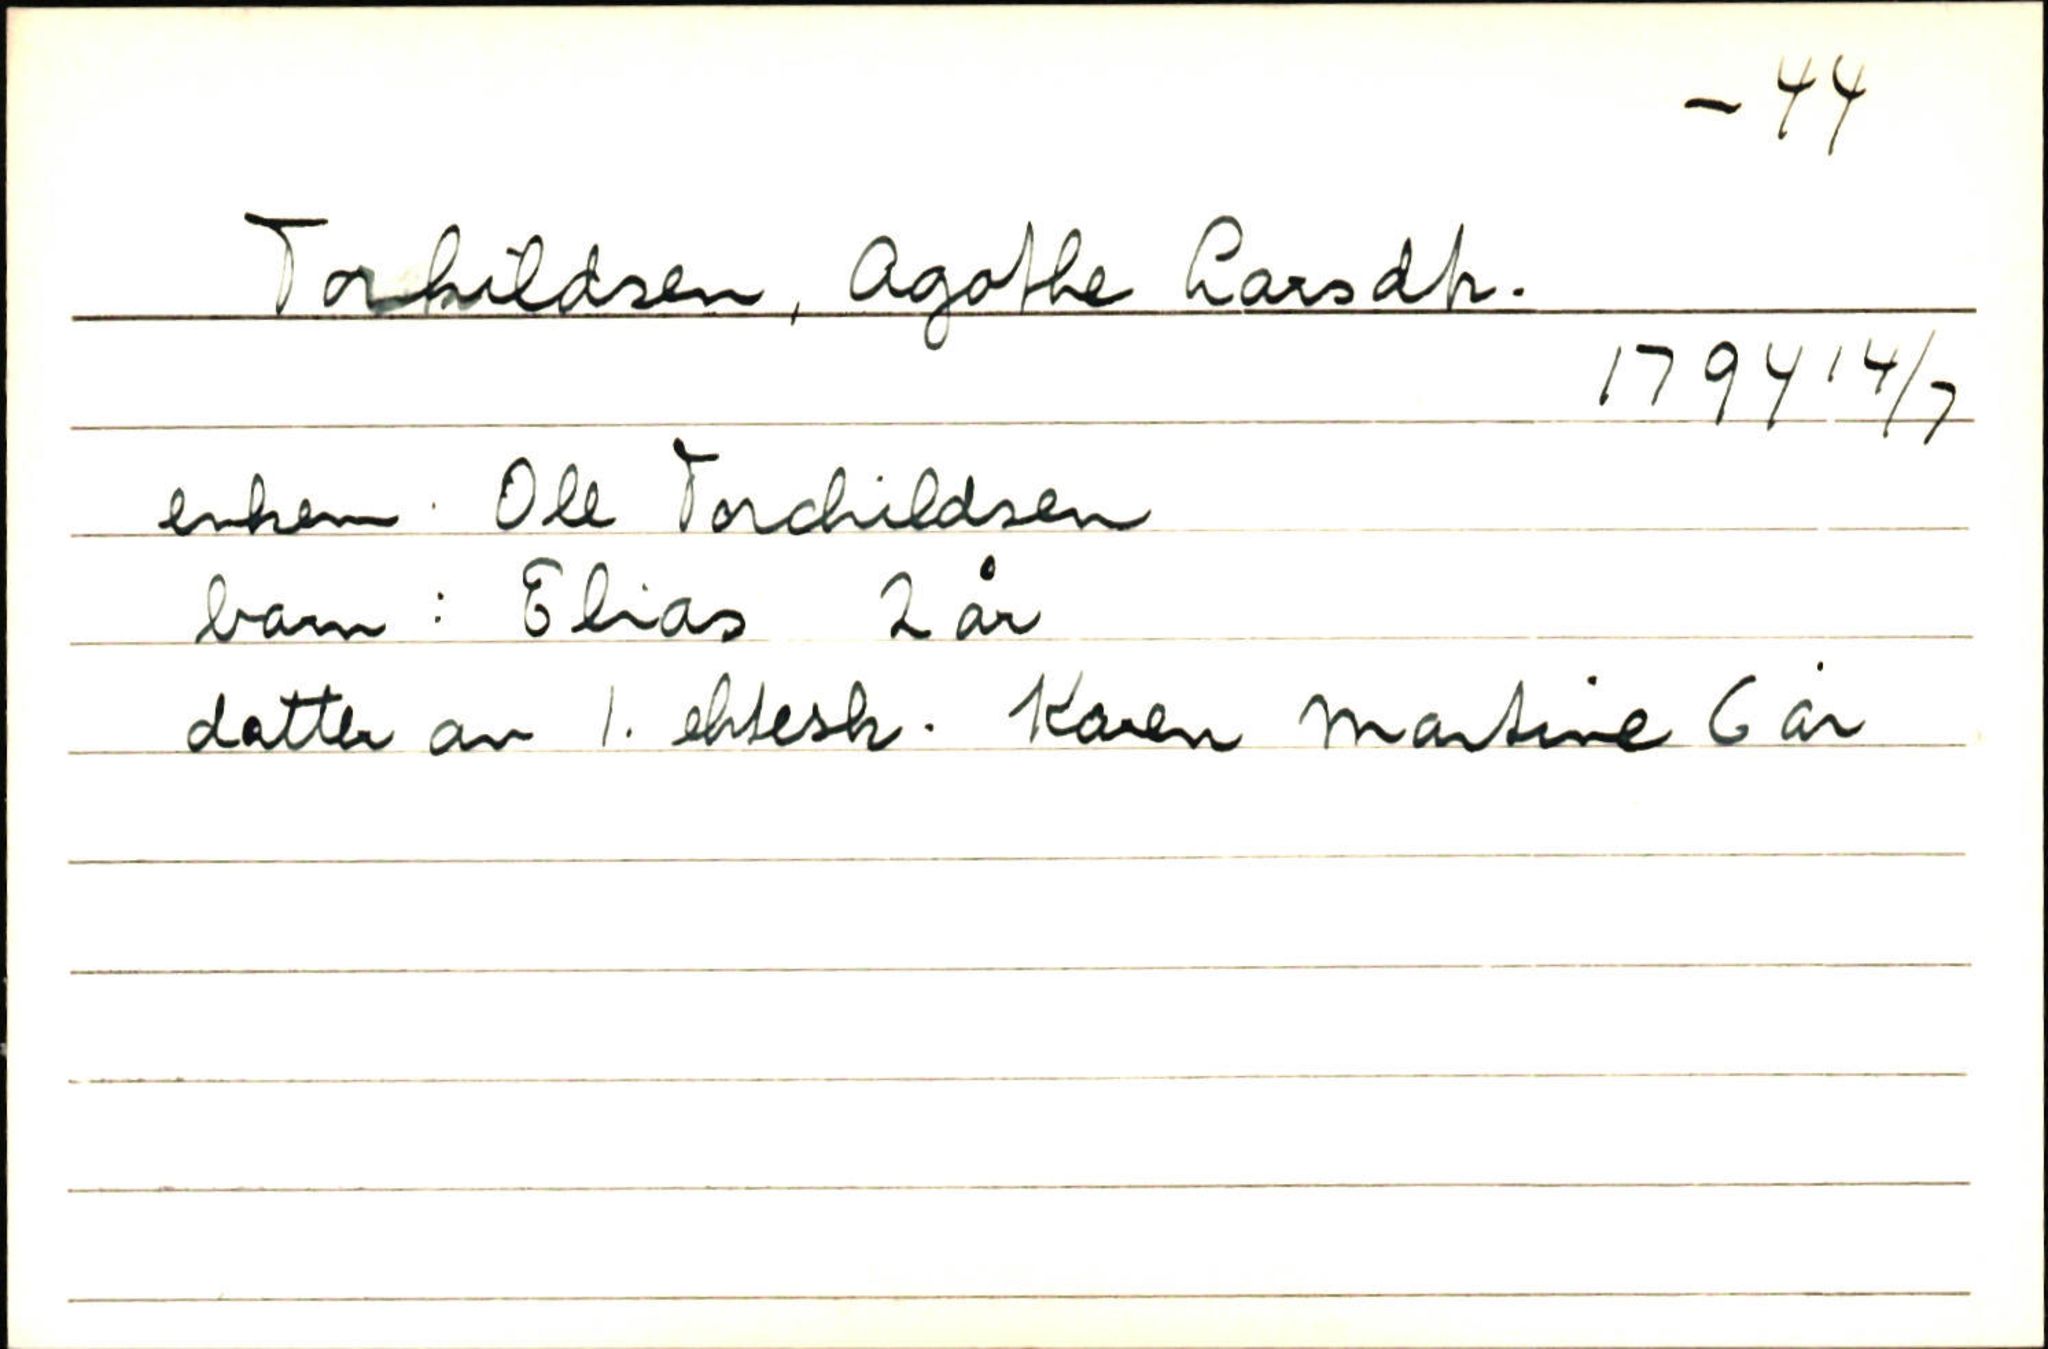 - 44
Torkildsen, Agathe Larsdtr.
1794 14/7
enkem. Ole Torchildsen
barn : Elias 2 år
datter av 1. ektesk. Karen Martine 6 år